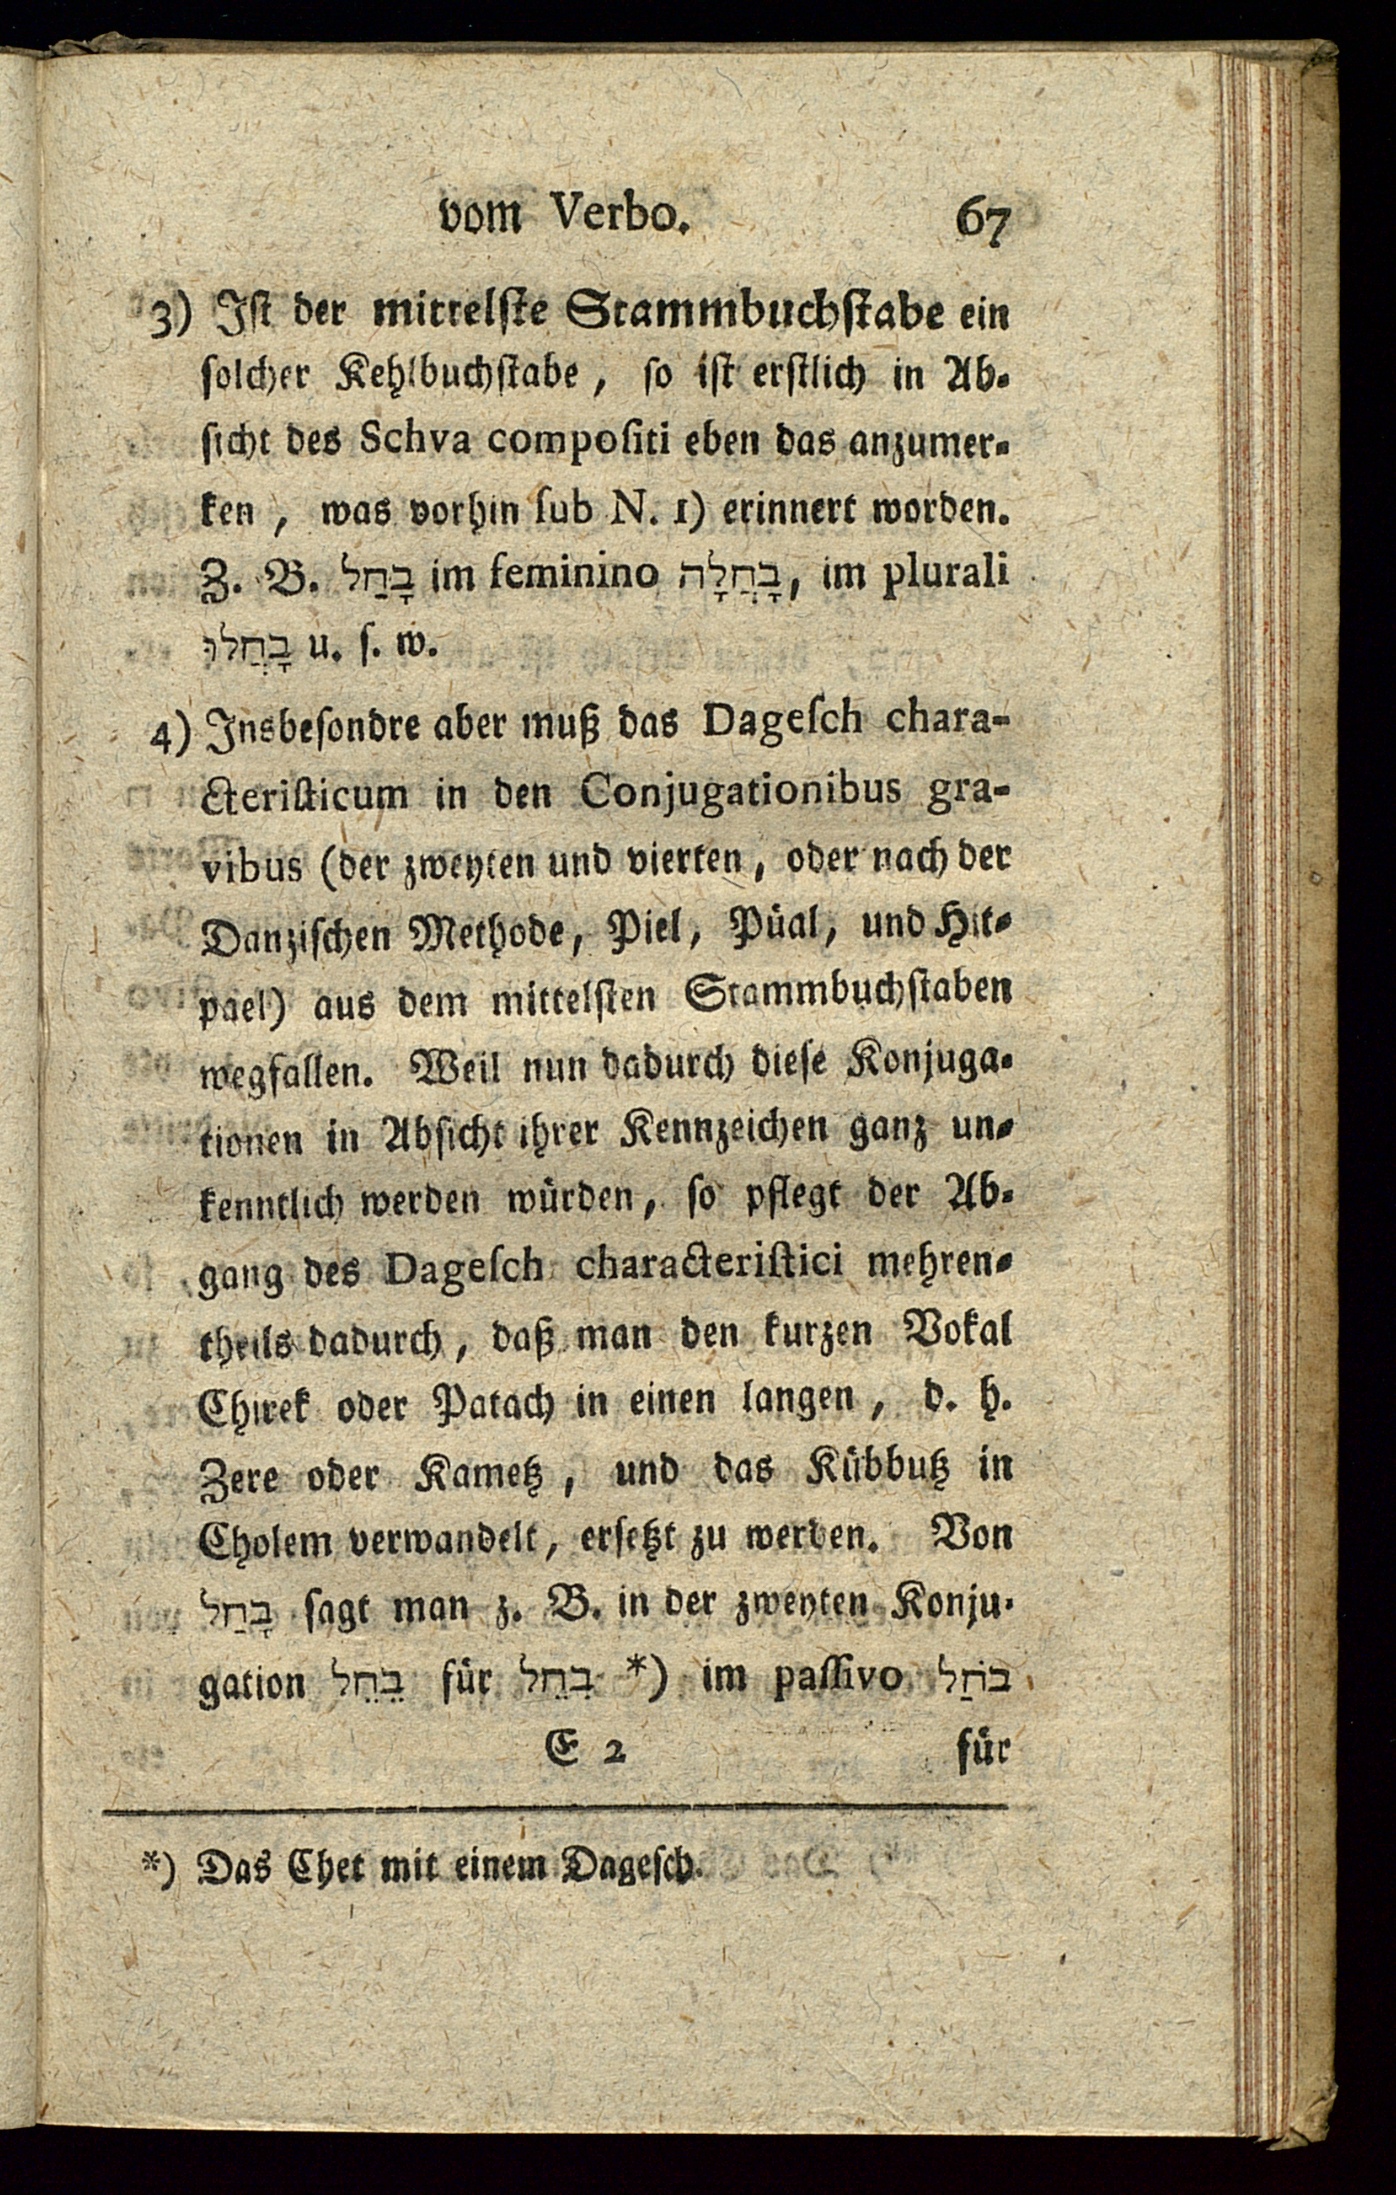 vom Verbo. 67
3) Iſt der mittelſte Stammbuchſtabe ein
ſolcher Kehlbuchſtabe, ſo iſt erſtlich in Ab-
ſicht des Schva compoſiti eben das anzumer-
ken, was vorhin ſub N. 1) erinnert worden.
Z. B. בָּחַל im feminino בָּחֲלָה, im plurali
בָּחֲלוּ u. ſ. w.
4) Insbeſondre aber muß das Dageſch chara-
cteriſticum in den Conjugationibus gra-
vibus (der zweyten und vierten, oder nach der
Danziſchen Methode, Piel, Püal, und Hit-
pael) aus dem mittelſten Stammbuchſtaben
wegfallen. Weil nun dadurch dieſe Konjuga-
tionen in Abſicht ihrer Kennzeichen ganz un-
kenntlich werden würden, ſo pflegt der Ab-
gang des Dageſch characteriſtici mehren-
theils dadurch, daß man den kurzen Vokal
Chirek oder Patach in einen langen, d. h.
Zere oder Kametz, und das Kübbutz in
Cholem verwandelt, erſetzt zu werden. Von
בָּחַל ſagt man z. B. in der zweyten Konju-
gation בֵּחֵל für בִּחֵל *) im paſſivo בֹּחַל
E 2 für
*) Das Chet mit einem Dageſch.